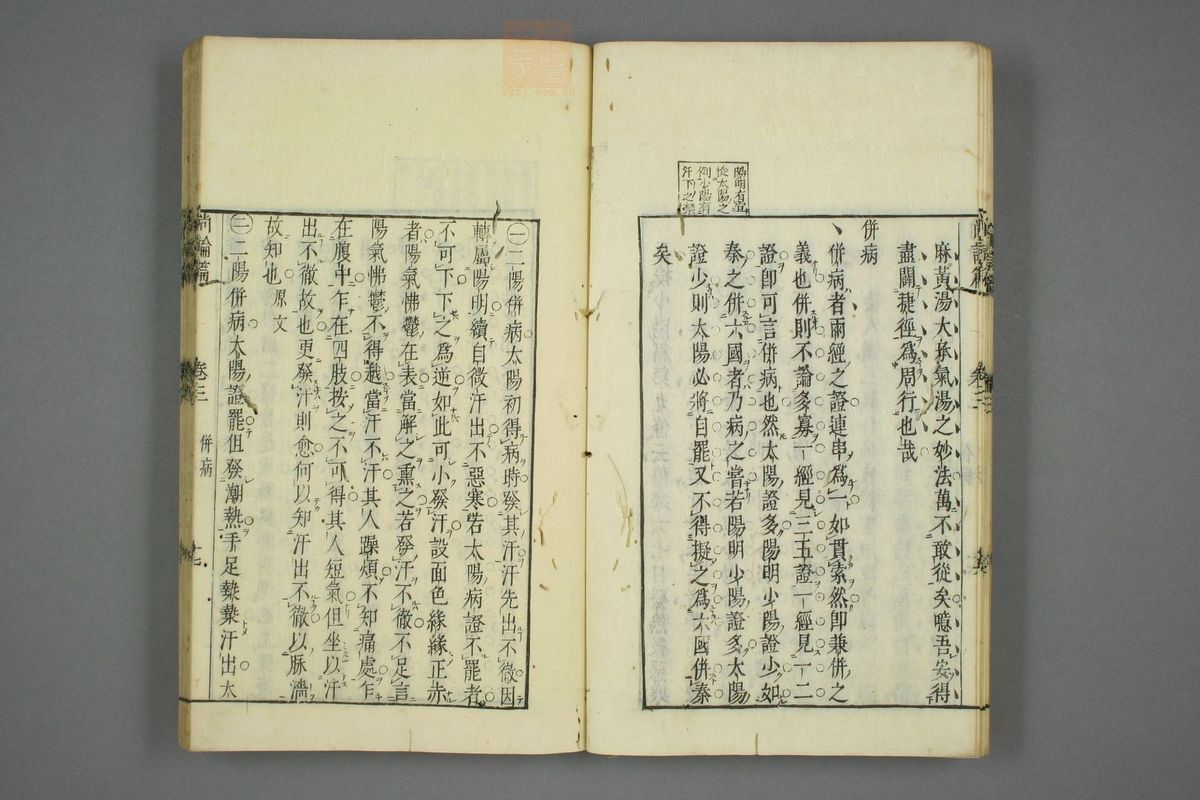 陽明有宜
從太陽之
例少陽有
汗下之禁
麻黃湯大承氣湯之妙法萬不敢從矣噫吾安得
盡闢捷徑爲周行也哉
併病
併病者兩經之證連串爲一如貫索然卽兼併之
義也併則不論多寡一經見三五證一經見一二
證卽可言併病也然太陽證多陽明少陽證少如
秦之併六國者乃病之常若陽明少陽證多太陽
證少則太陽必將自罷又不得擬之爲六國併秦
矣
卷三
㊀二陽併病太陽初得病時發其汗汗先出不徹因
轉屬陽明續自微汗出不惡寒若太陽病證不罷者
不可下下之爲逆如此可小發汗設面色緣緣正赤
者陽氣怫鬱在表當解之熏之若發汗不徹不足言
陽氣怫鬱不得越當汗不汗其人躁煩不知痛處乍
在腹中乍在四肢按之不可得其人短氣但坐以汗
出不徹故也更發汗則愈何以知汗出不徹以脉濇
故知也 原文
㊁二陽併病太陽證罷但發潮熱手足漐漐汗出大
尚論篇 卷三 併病 十七
zycj.com.cn